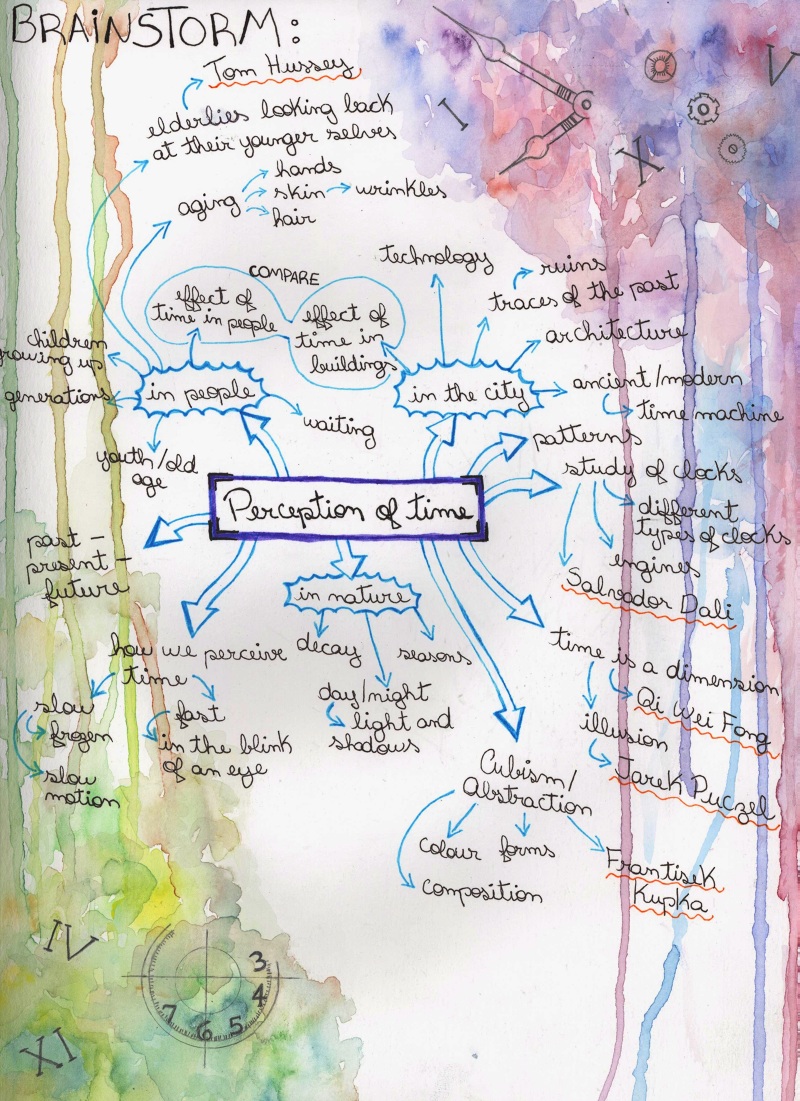 BRAINSTORM:
Tom Hussey
elderlies looking back
at their younger selves
aging
hands
skin
wrinkles
hair
COMPARE
effect of
time in people
effect of
time in
buildings
technology
ruins
traces of the past
architecture
ancient/modern
time machine
in the city
in people
children
growing up
generations
youth/old
age
waiting
patterns
study of clocks
different
types of clocks
engines
Salvador Dali
Perception of time
past -
present -
future
in nature
decay
seasons
day/night
light and
shadows
how we perceive
time
slow
frozen
slow
motion
fast
in the blink
of an eye
time is a dimension
Qi Wei Fong
illusion
Jarek Puczel
Cubism/
Abstraction
colour forms
composition
Frantisek
Kupka
I
X
V
IV
XI
3
4
5
6
7